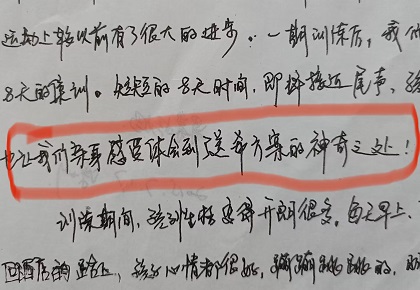 运动上较以前有了很大的进步。一期训练后，我们
8天的集训。短短的8天时间，即将接近尾声，孩
也让我们亲身感受体会到送希方案的神奇之处！
训练期间，孩到性格变得开朗很多。每天早上、
回酒店的路上，孩子心情都很好，蹦蹦跳跳的，